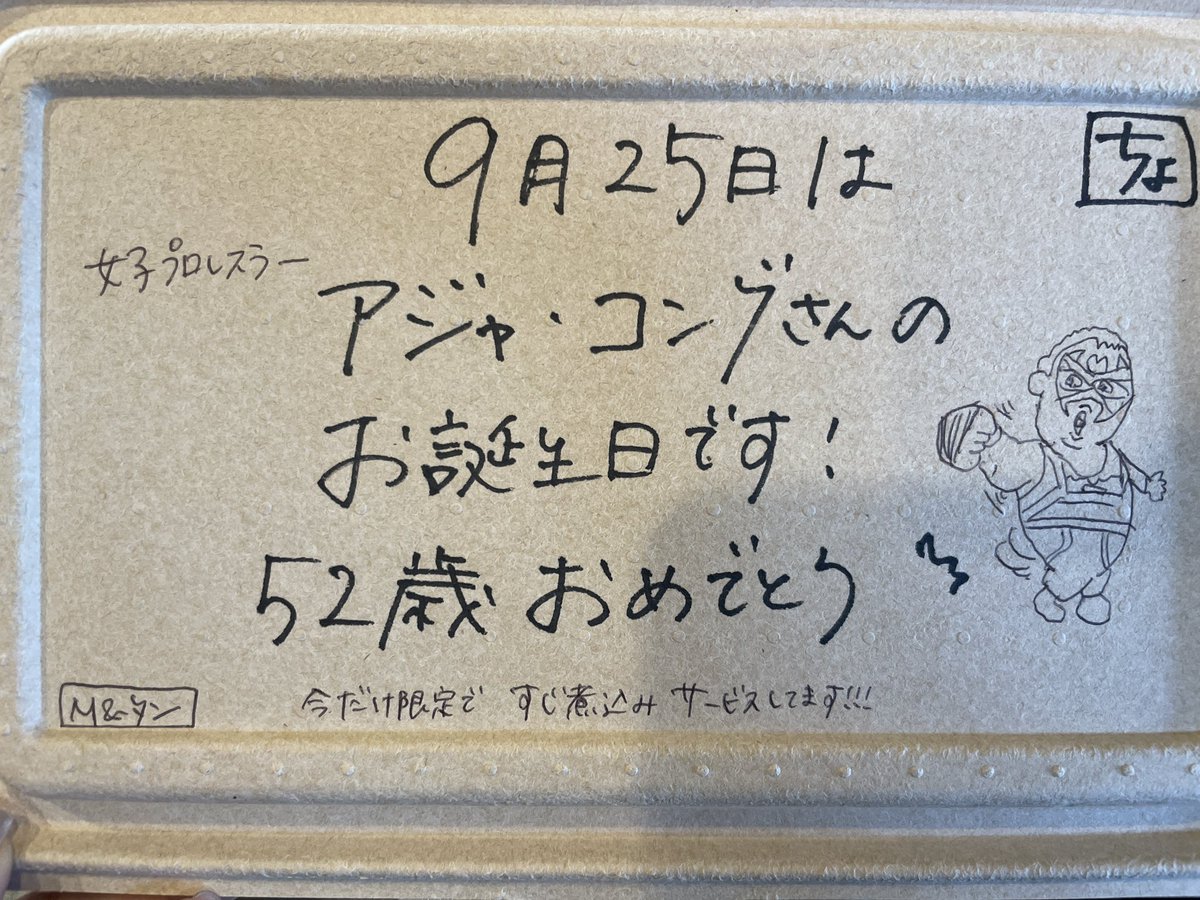 9月25日は
ちょ
女子プロレスラー
アジャ・コングさんの
お誕生日です!
52歳おめでとう
M&タン
今だけ限定で すじ煮込み サービスしてます!!!